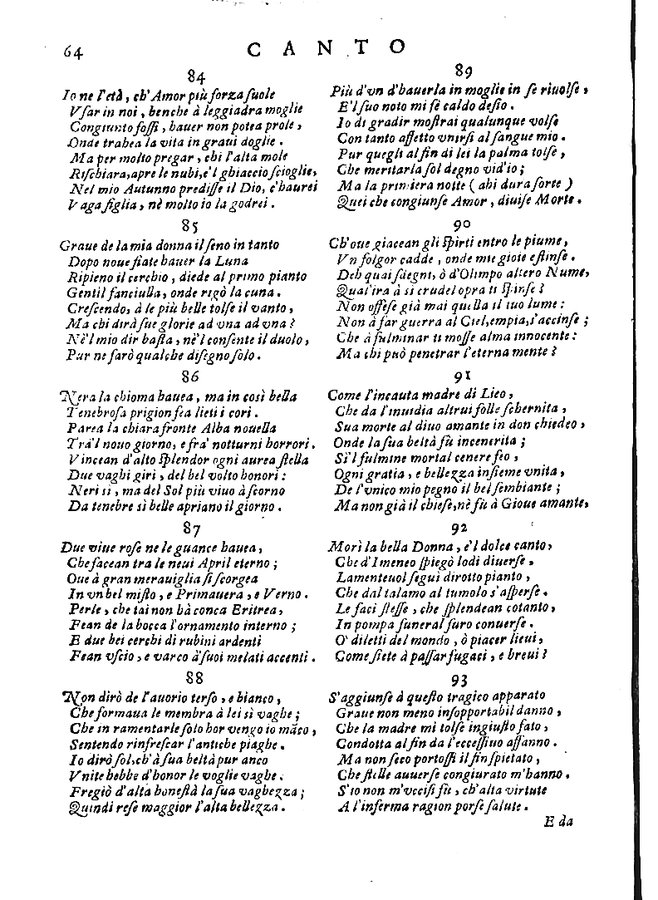 64 CANTO
84
Io ne l'età, ch'Amor più forza suole
Vsar in noi, benche à leggiadra moglie
Congiunto fossi, hauer non potea prole,
Onde trahea la vita in graui doglie.
Ma per molto pregar, chi l'alta mole
Rischiara, apre le nubi, e'l ghiaccio scioglie,
Nel mio Autunno predisse il Dio, c'haurei
Vaga figlia, nè molto io la godrei.
85
Graue de la mia donna il seno in tanto
Dopo noue fiate hauer la Luna
Ripieno il cerchio, diede al primo pianto
Gentil fanciulla, onde rigò la cuna.
Crescendo, à le più belle tolse il vanto,
Ma chi dirà sue glorie ad vna ad vna?
Nè'l mio dir basta, nè'l consente il duolo,
Pur ne farò qualche disegno solo.
86
Nera la chioma hauea, ma in così bella
Tenebrosa prigion fea lieti i cori.
Parea la chiara fronte Alba nouella
Trà'l nouo giorno, e frà notturni horrori.
Vincean d'alto splendor ogni aurea stella
Due vaghi giri, del bel volto honori:
Neri sì, ma del Sol più viuo à scorno
Da tenebre sì belle apriano il giorno.
87
Due viue rose ne le guance hauea,
Che facean tra le neui April eterno;
Oue à gran merauiglia si scorgea
In vn bel misto, e Primauera, e Verno.
Perle, che tai non hà conca Eritrea,
Fean de la bocca l'ornamento interno;
E due bei cerchi di rubini ardenti
Fean vscio, e varco à suoi melati accenti.
88
Non dirò de l'auorio terso, e bianco,
Che formaua le membra à lei sì vaghe;
Che in ramentarle solo hor vengo io mãco,
Sentendo rinfrescar l'antiche piaghe.
Io dirò sol, ch'à sua beltà pur anco
Vnite hebbe d'honor le voglie vaghe.
Fregiò d'alta honestà la sua vaghezza;
Quindi rese maggior l'alta bellezza.
89
Più d'vn d'hauerla in moglie in se riuolse,
E'l suo noto mi fè caldo desio.
Io di gradir mostrai qualunque volse
Con tanto affetto vnirsi al sangue mio.
Pur quegli al fin di lei la palma tolse,
Che meritarla sol degno vid'io;
Ma la primiera notte (ahi dura sorte)
Quei che congiunse Amor, diuise Morte.
90
Ch'oue giacean gli spirti entro le piume,
Vn folgor cadde, onde mie gioie estinse.
Deh quai sdegni, ò d'Olimpo altero Nume,
Qual'ira à sì crudel opra ti spinse?
Non offese già mai quella il tuo lume:
Non à far guerra al Ciel, empia, s'accinse;
Che à fulminar ti mosse alma innocente:
Ma chi può penetrar l'eterna mente?
91
Come l'incauta madre di Lieo,
Che da l'inuidia altrui folle schernita,
Sua morte al diuo amante in don chiedeo,
Onde la sua beltà fù incenerita;
Sì'l fulmine mortal cenere feo,
Ogni gratia, e bellezza insieme vnita,
De l'vnico mio pegno il bel sembiante;
Ma non già il chiese, nè fù à Gioue amante,
92
Morì la bella Donna, e'l dolce canto,
Che d'Imeneo spiegò lodi diuerse.
Lamenteuol seguì dirotto pianto,
Che dal talamo al tumolo s'asperse.
Le faci stesse, che splendean cotanto,
In pompa funeral furo conuerse.
O' diletti del mondo, ò piacer lieui,
Come siete à passar fugaci, e breui?
93
S'aggiunse à questo tragico apparato
Graue non meno insopportabil danno,
Che la madre mi tolse ingiusto fato,
Condotta al fin da l'eccessiuo affanno.
Ma non seco portossi il fin spietato,
Che stelle auuerse congiurato m'hanno.
S'io non m'vccisi fù, ch'alta virtute
A l'inferma ragion porse salute.
E da